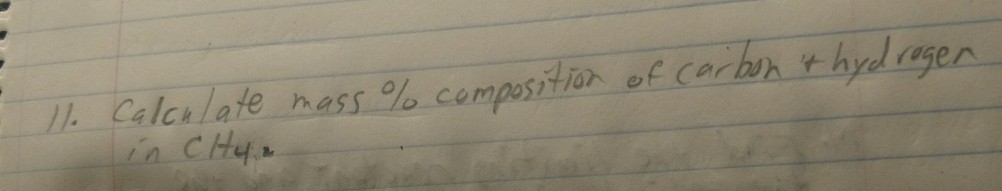 11. Calculate mass % composition of carbon + hydrogen
in CH4.